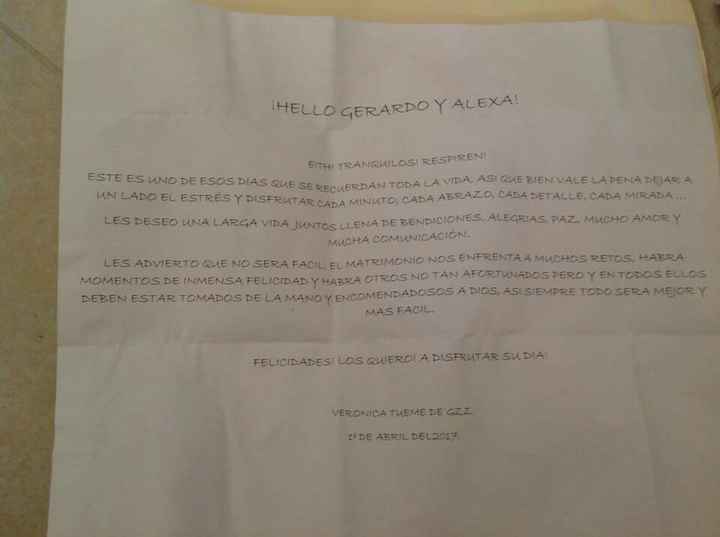 ¡HELLO GERARDO Y ALEXA!
EITH! TRANQUILOS! RESPIREN!
ESTE ES UNO DE ESOS DIAS QUE SE RECUERDAN TODA LA VIDA, ASI QUE BIEN VALE LA PENA DEJAR A
UN LADO EL ESTRÉS Y DISFRUTAR CADA MINUTO, CADA ABRAZO, CADA DETALLE, CADA MIRADA ...
LES DESEO UNA LARGA VIDA JUNTOS LLENA DE BENDICIONES, ALEGRIAS, PAZ, MUCHO AMOR Y
MUCHA COMUNICACIÓN.
LES ADVIERTO QUE NO SERA FACIL, EL MATRIMONIO NOS ENFRENTA A MUCHOS RETOS, HABRA
MOMENTOS DE INMENSA FELICIDAD Y HABRA OTROS NO TAN AFORTUNADOS PERO Y EN TODOS ELLOS
DEBEN ESTAR TOMADOS DE LA MANO Y ENCOMENDADOSOS A DIOS, ASI SIEMPRE TODO SERA MEJOR Y
MAS FACIL.
FELICIDADES! LOS QUIERO! A DISFRUTAR SU DIA!
VERONICA TUEME DE GZZ.
1º DE ABRIL DEL2017.